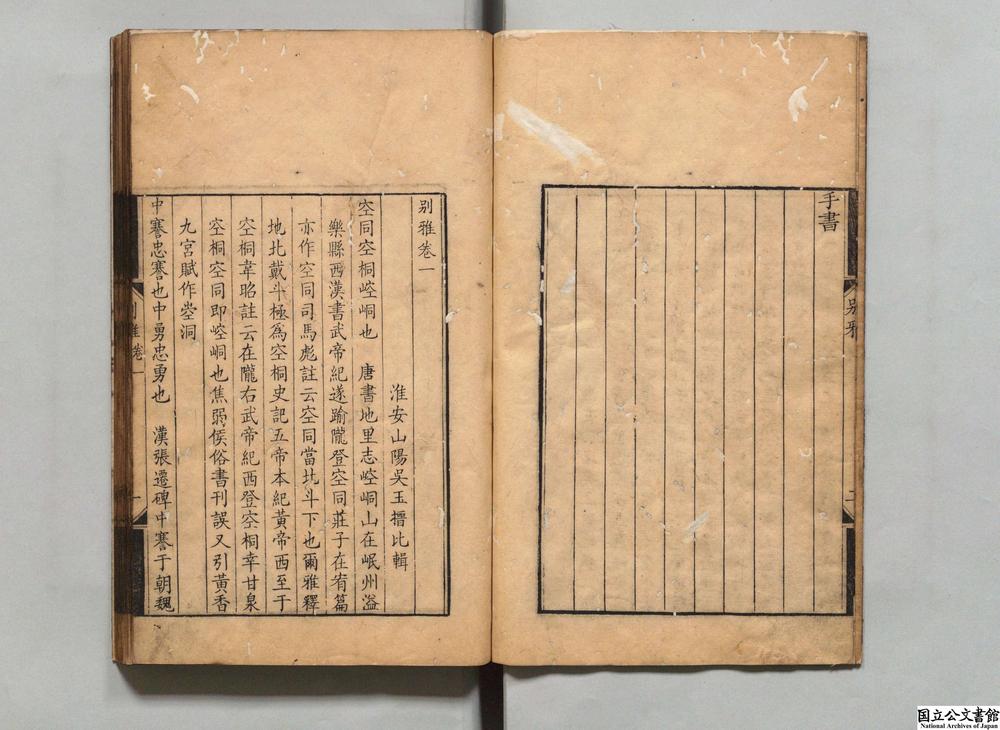 手書
别雅
二
别雅卷一
淮安山陽吳玉搢比輯
空同空桐崆峒也　唐書地里志崆峒山在岷州溢
樂縣西漢書武帝紀遂踰隴登空同莊子在宥篇
亦作空同司馬彪註云空同當北斗下也爾雅釋
地北戴斗極為空桐史記五帝本紀黃帝西至于
空桐韋昭註云在隴右武帝紀西登空桐幸甘泉
空桐空同即崆峒也焦弱侯俗書刊誤又引黃香
九宮賦作崆洞
中謇忠謇也中勇忠勇也　漢張遷碑中謇于朝魏
别雅卷一
一
国立公文書館
National Archives of Japan